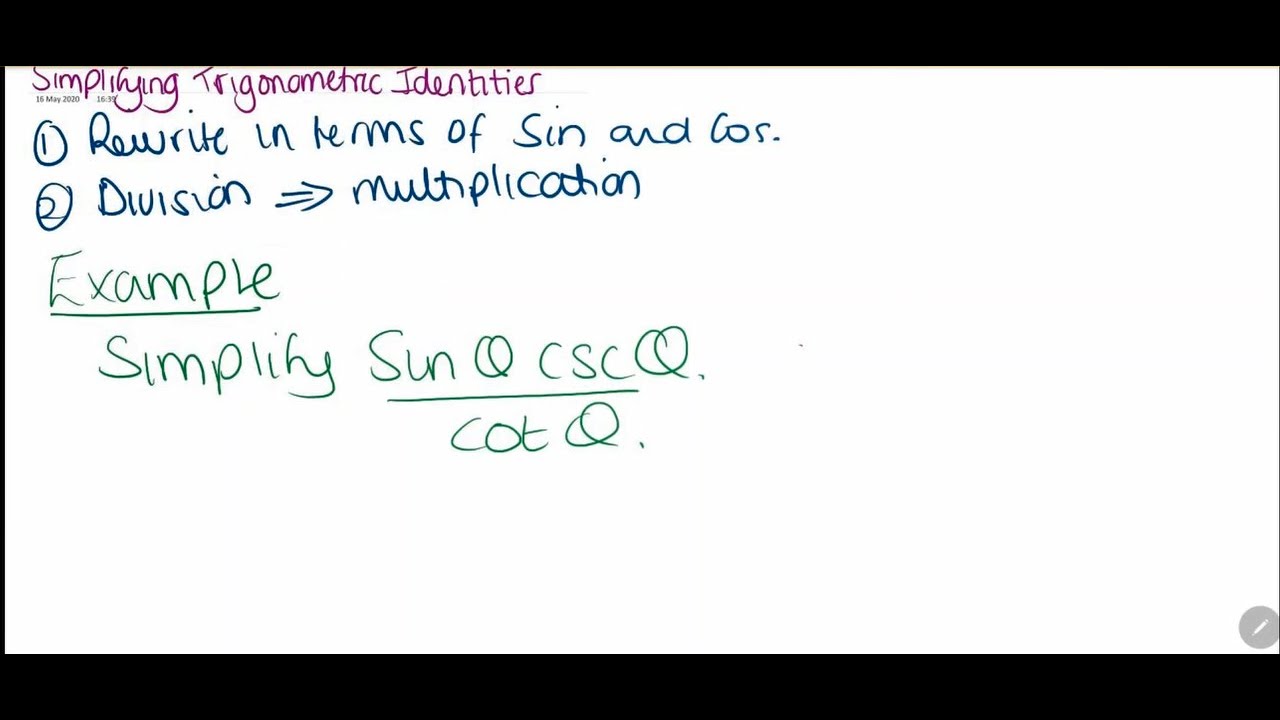 Simplifying Trigonometric Identities
16 May 2020 16:39
① Rewrite in terms of Sin and Cos.
② Division ⇒ multiplication
Example
Simplify Sin θ csc θ.
cot θ.